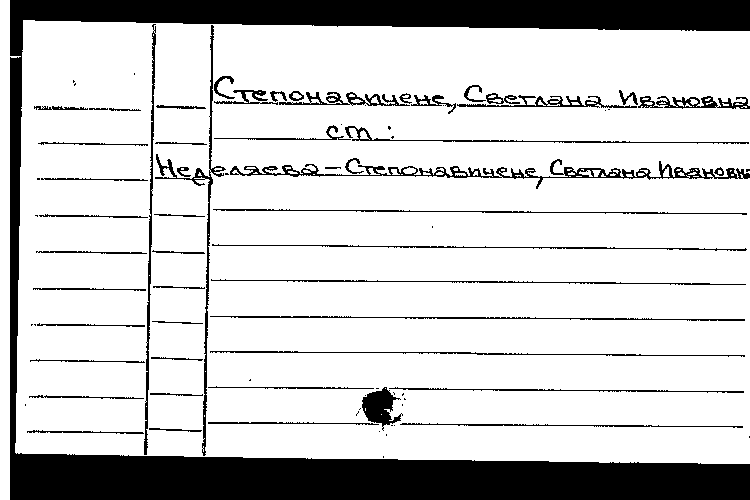 Степонавичене, Светлана Ивановна
ст:
Неделяева-Степонавичене, Светлана Ивановна